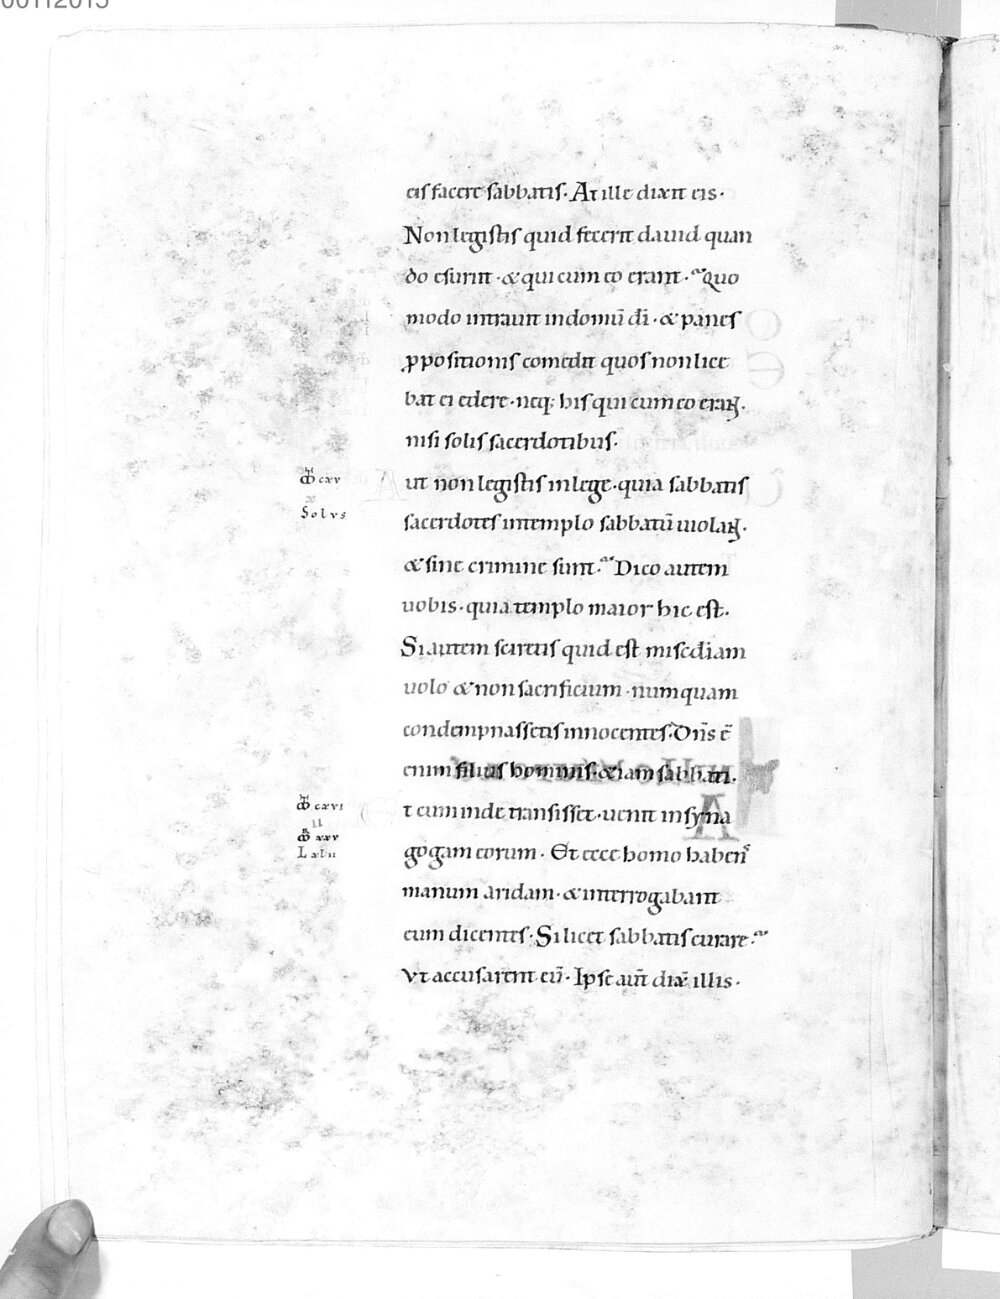 eis facere sabbatis. At ille dixit eis.
Non legistis quid fecerit dauid quan
do esuriit. & qui cum eo erant. Quo
modo intrauit in domū dī. & panes
ꝓpositionis comedit quos non lice
bat ei edere. neq; his qui cum eo eraꝝ.
nisi solis sacerdotibus.
cxv
ut non legistis in lege. quia sabbatis
Solvs
sacerdotes in templo sabbatū uiolaꝝ.
& sine crimine sunt. Dico autem
uobis. quia templo maior hic est.
Si autem sciretis quid est misc̄diam
uolo & non sacrificium. numquam
condempnassetis innocentes. Dn̄s ē
enim filius hominis. & iam sabbati.
cxvi
t cum inde transisset. uenit in syna
II
xxv
gogam eorum. Et ecce homo haben̄s
manum aridam. & interrogabant
eum dicentes. Si licet sabbatis curare.
Vt accusarent eū. Ipse aut̄ dix̄ illis.